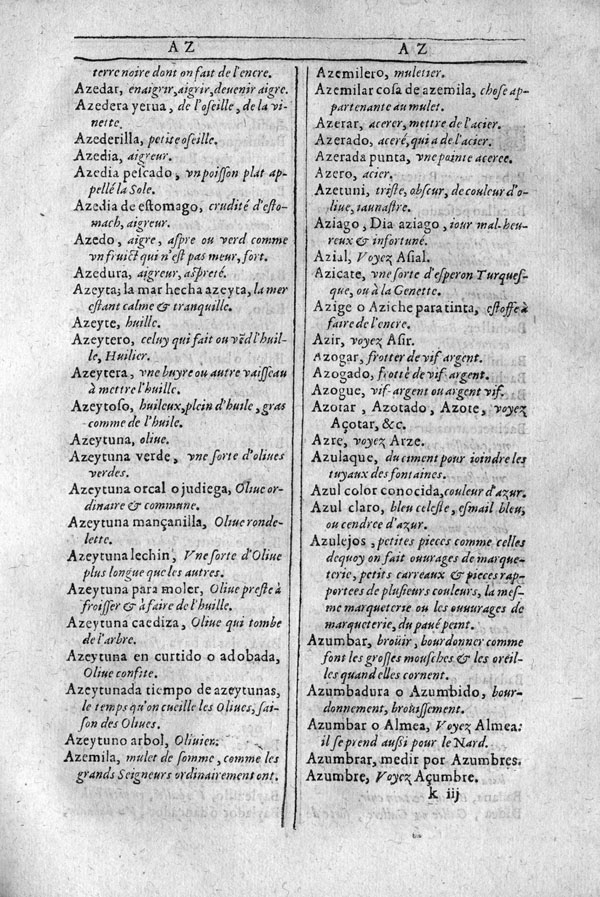 A Z
terre noire dont on fait de l'encre.
Azedar, enaigrir, aigrir, deuenir aigre.
Azedera yerua, de l'oseille, de la vi-
nette.
Azederilla, petite oseille.
Azedia, aigreur.
Azedia pescado, vn poisson plat ap-
pellé la Sole.
Azedia de estomago, crudité d'esto-
mach, aigreur.
Azedo, aigre, aspre ou verd comme
vn fruict qui n'est pas meur, sort.
Azedura, aigreur, aspreté.
Azeyta; la mar hecha azeyta, la mer
estant calme & tranquille.
Azeyte, huille.
Azeytero, celuy qui fait ou vẽd l'huil-
le, Huilier.
Azeytera, vne buyre ou autre vaisseau
à mettre l'huille.
Azeytoso, huileux, plein d'huile, gras
comme de l'huile.
Azeytuna, oliue.
Azeytuna verde, vne sorte d'oliues
verdes.
Azeytuna orcal o judiega, Oliue or-
dinaire & commune.
Azeytuna mançanilla, Oliue ronde-
lette.
Azeytuna lechin, Vne sorte d'Oliue
plus longue que les autres.
Azeytuna para moler, Oliue preste à
froisser & à faire de l'huille.
Azeytuna caediza, Oliue qui tombe
de l'arbre.
Azeytuna en curtido o adobada,
Oliue confite.
Azeytunada tiempo de azeytunas,
le temps qu'on cueille les Oliues, sai-
son des Oliues.
Azeytuno arbol, Oliuier.
Azemila, mulet de somme, comme les
grands Seigneurs ordinairement ont.
A Z
Azemilero, muletier.
Azemilar cosa de azemila, chose ap-
partenante au mulet.
Azerar, acerer, mettre de l'acier.
Azerado, aceré, qui a de l'acier.
Azerada punta, vne pointe aceree.
Azero, acier.
Azetuni, triste, obscur, de couleur d'o-
liue, taunastre.
Aziago, Dia aziago, iour mal-heu-
reux & infortuné.
Azial, Voyez Asial.
Azicate, vne sorte d'esperon Turques-
que, ou à la Genette.
Azige o Aziche para tinta, estoffe à
faire de l'encre.
Azir, voyez Asir.
Azogar, frotter de vif argent.
Azogado, frotté de vif argent.
Azogue, vif-argent ou argent vif.
Azotar, Azotado, Azote, voyez
Açotar, &c.
Azre, voyez Arze.
Azulaque, du ciment pour ioindre les
tuyaux des fontaines.
Azul color conocida, couleur d'azur.
Azul claro, bleu celeste, esmail bleu,
ou cendree d'azur.
Azulejos, petites pieces comme celles
dequoy on fait ouurages de marque-
terie, petits carreaux & pieces rap-
portees de plusieurs couleurs, la mes-
me marqueterie ou les ouuurages de
marqueterie, du paué peint.
Azumbar, broüir, bourdonner comme
font les grosses mousches & les oreil-
les quand elles cornent.
Azumbadura o Azumbido, bour-
donnement, broüissement.
Azumbar o Almea, Voyez Almea:
il se prend aussi pour le Nard.
Azumbrar, medir por Azumbres.
Azumbre, Voyez Açumbre.
k iij